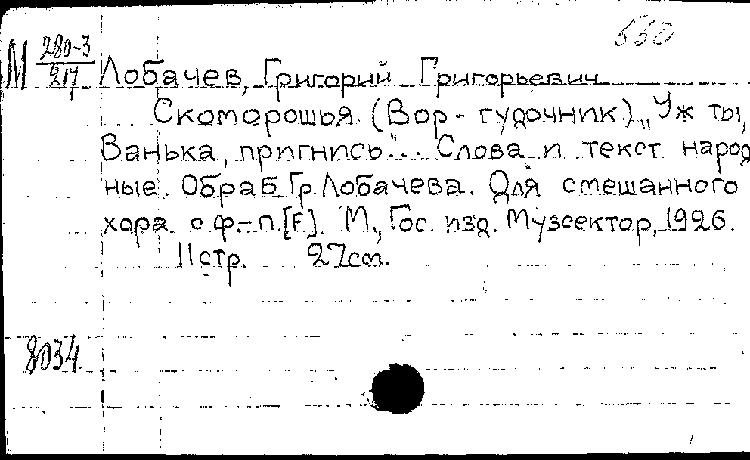 550
М 280-3
217
Лобачев, Григорий Григорьевич
Скоморошья. (Вор - гудочник) „Уж ты,
Ванька, пригнись"... Слова и текст народ
ные. Обраб Гр Лобачева. Для смешанного
хора с ф.-п. [F]. М., Гос. изд. Музсектор, 1926.
11 стр. 27 cm.
8034.